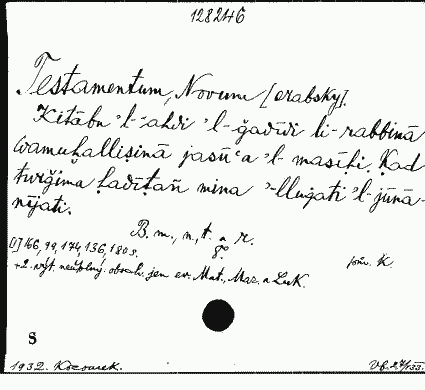 128246
Testamentum, Novum [arabsky].
Kitābu 'l-'ahdi 'l-ǧadīdi li-rabbinā
wamuḫalliṣinā jasū'a 'l-masīḥi. Ḳad
turǧima ḥadīṯan mina 'lluġati 'l-jūnā-
nījati.
B. m., n., t. a r.
8°
[I] 166, 99, 174, 136, 180 s.
+ 2. výt. neúplný: obsah. jen ev. Mat., Mar. a Luk.
pozn. K
S
1932. Kocourek.